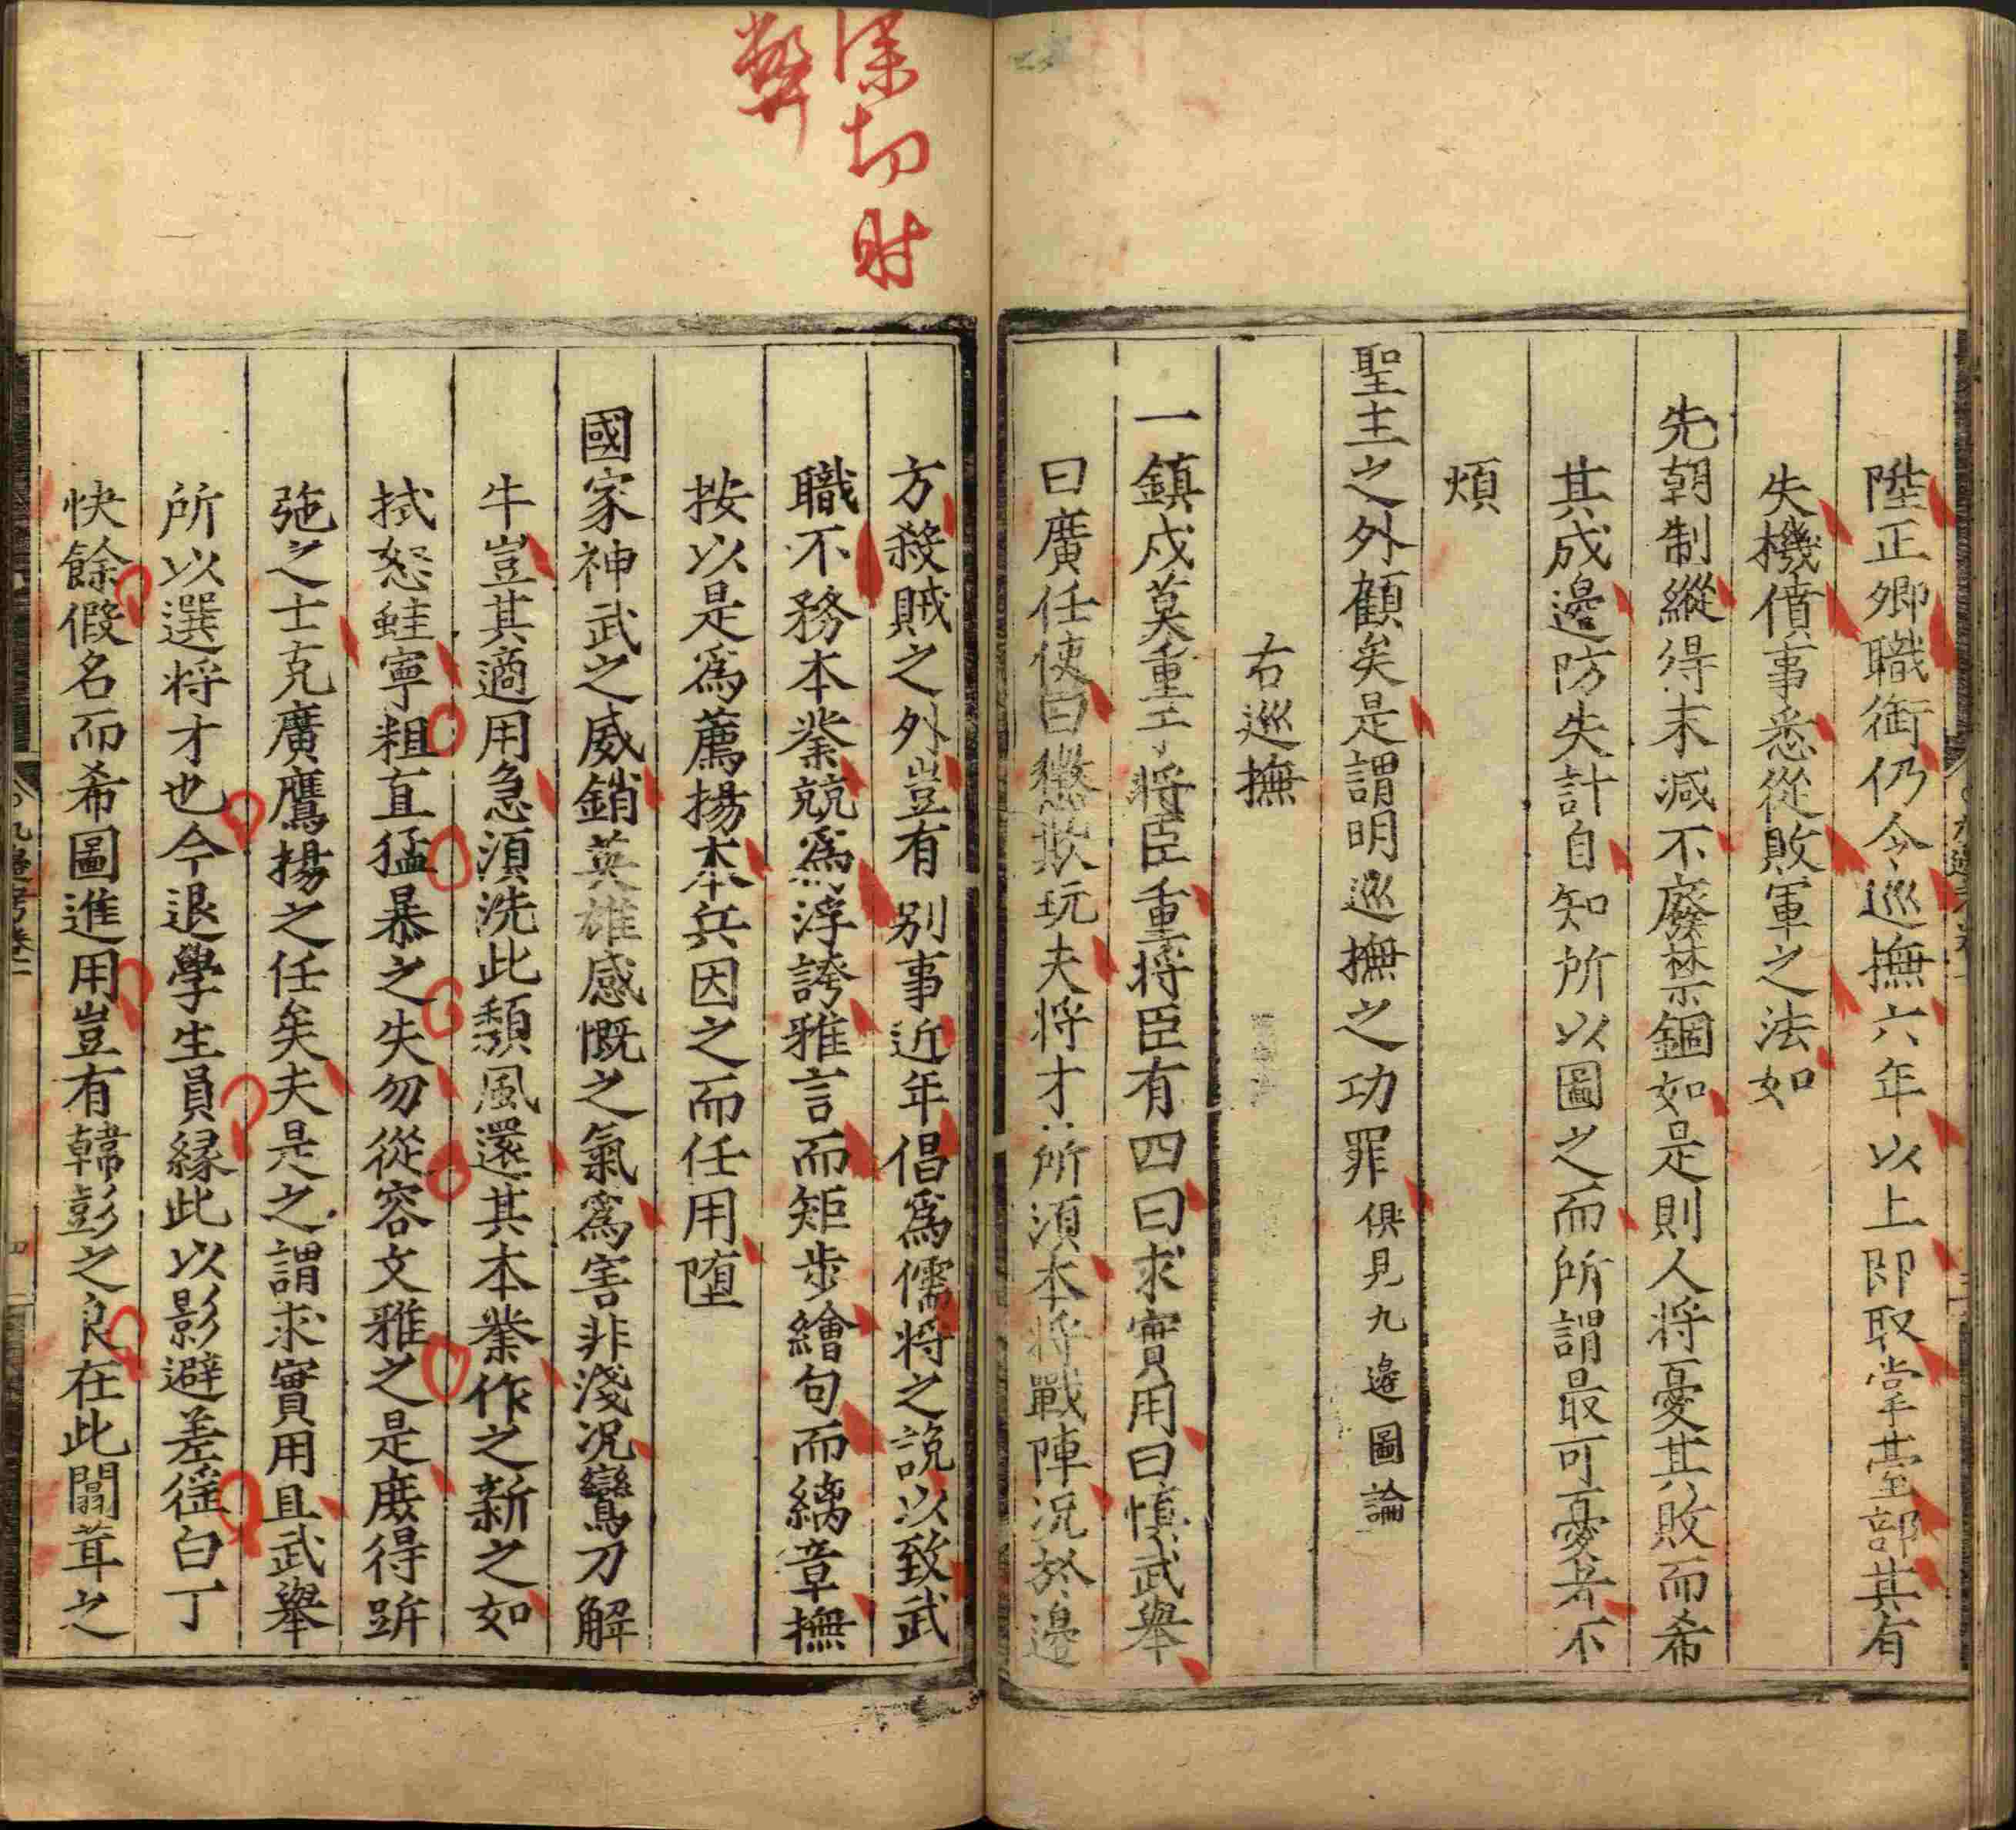 陞正卿職銜仍令巡撫六年以上即取掌臺部其有
失機僨事悉從敗軍之法如
先朝制縱得末減不廢禁錮如是則人將憂其敗而希
其成邊防失計自知所以圖之而所謂最可憂者不
煩
聖主之外顧矣是謂明巡撫之功罪俱見九邊圖論
右巡撫
一鎮戍莫重于將臣重將臣有四曰求實用曰慎武舉
曰廣任使曰懲欺玩夫將才所須本將戰陣況於邊
深切時
弊
方殺賊之外豈有别事近年倡爲儒將之說以致武
職不務本業競爲浮誇雅言而矩步繪句而繡章撫
按以是爲薦揚本兵因之而任用堕
國家神武之威銷英雄感慨之氣爲害非淺況鸞刀解
牛豈其適用急須洗此頹風還其本業作之新之如
拭怒蛙寧粗直猛暴之失勿從容文雅之是庻得跅
弛之士克廣鷹揚之任矣夫是之謂求實用且武舉
所以選將才也今退學生員縁此以影避差徭白丁
快餘假名而希圖進用豈有韓彭之良在此闒茸之